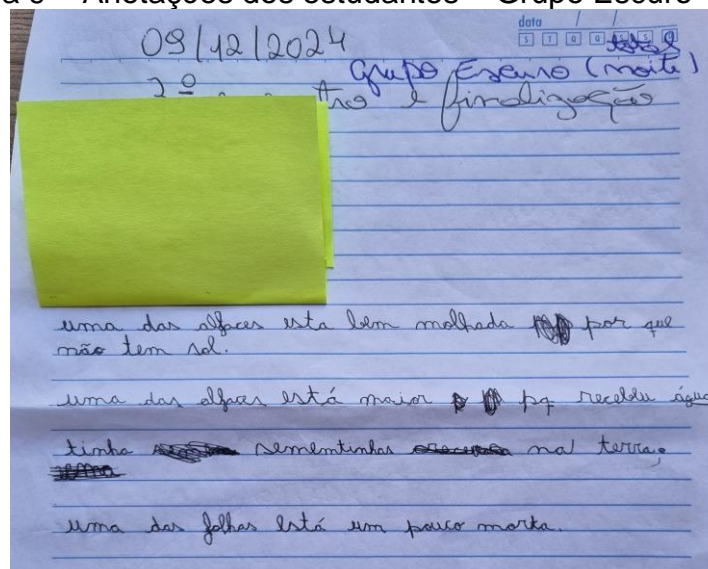 Anotações dos estudantes – Grupo Escuro
data / /
S T Q Q S S D
09/12/2024
total
Grupo Escuro (noite)
2º tro e finalização
uma das alfaces esta bem molhada por que
não tem sol.
uma das alfaces está maior pq recebeu água
tinha sementinhas na terra,
uma das folhas está um pouco morta.